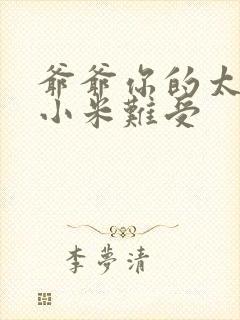 爺爺你的太
小米難受
李夢清